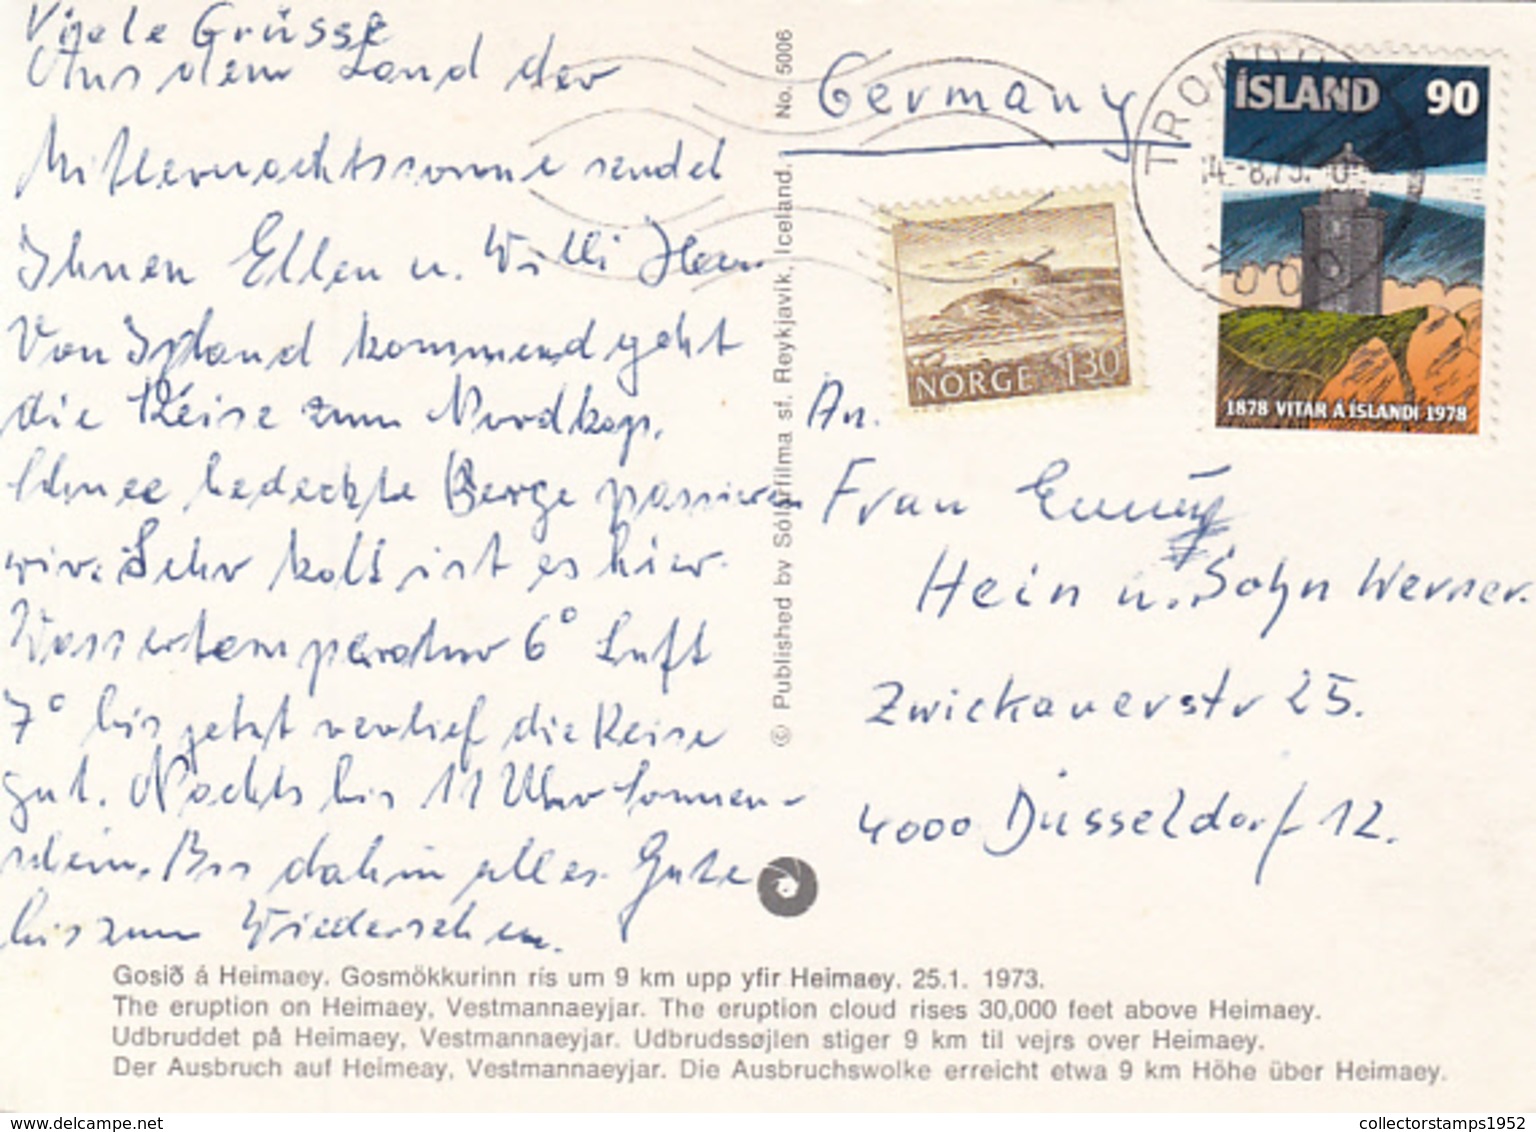 Viele Grüsse
Aus dem Land der
Mitternachtssonne sendet
Ihnen Ellen u. Willi Hein
Von Island kommend geht
die Reise zum Nordkap.
Schnee bedeckte Berge passieren
wir. Sehr kalt ist es hier.
Wassertemperatur 6° Luft
7° bis jetzt verlief die Reise
gut. Nachts bis 11 Uhr Sonnen-
schein. Bis dahin alles Gute
bis zum Wiedersehen.
© Published by Sólarfilma sf. Reykjavík, Iceland. No. 5006
Germany
ÍSLAND 90
1878 VITAR Á ÍSLANDI 1978
NORGE 130
An.
Frau
Hein u. Sohn Werner.
Zwickauerstr 25.
4000 Düsseldorf 12.
Gosið á Heimaey. Gosmökkurinn rís um 9 km upp yfir Heimaey. 25.1. 1973.
The eruption on Heimaey, Vestmannaeyjar. The eruption cloud rises 30,000 feet above Heimaey.
Udbruddet på Heimaey, Vestmannaeyjar. Udbrudssøjlen stiger 9 km til vejrs over Heimaey.
Der Ausbruch auf Heimeay, Vestmannaeyjar. Die Ausbruchswolke erreicht etwa 9 km Höhe über Heimaey.
www.delcampe.net
collectorstamps1952